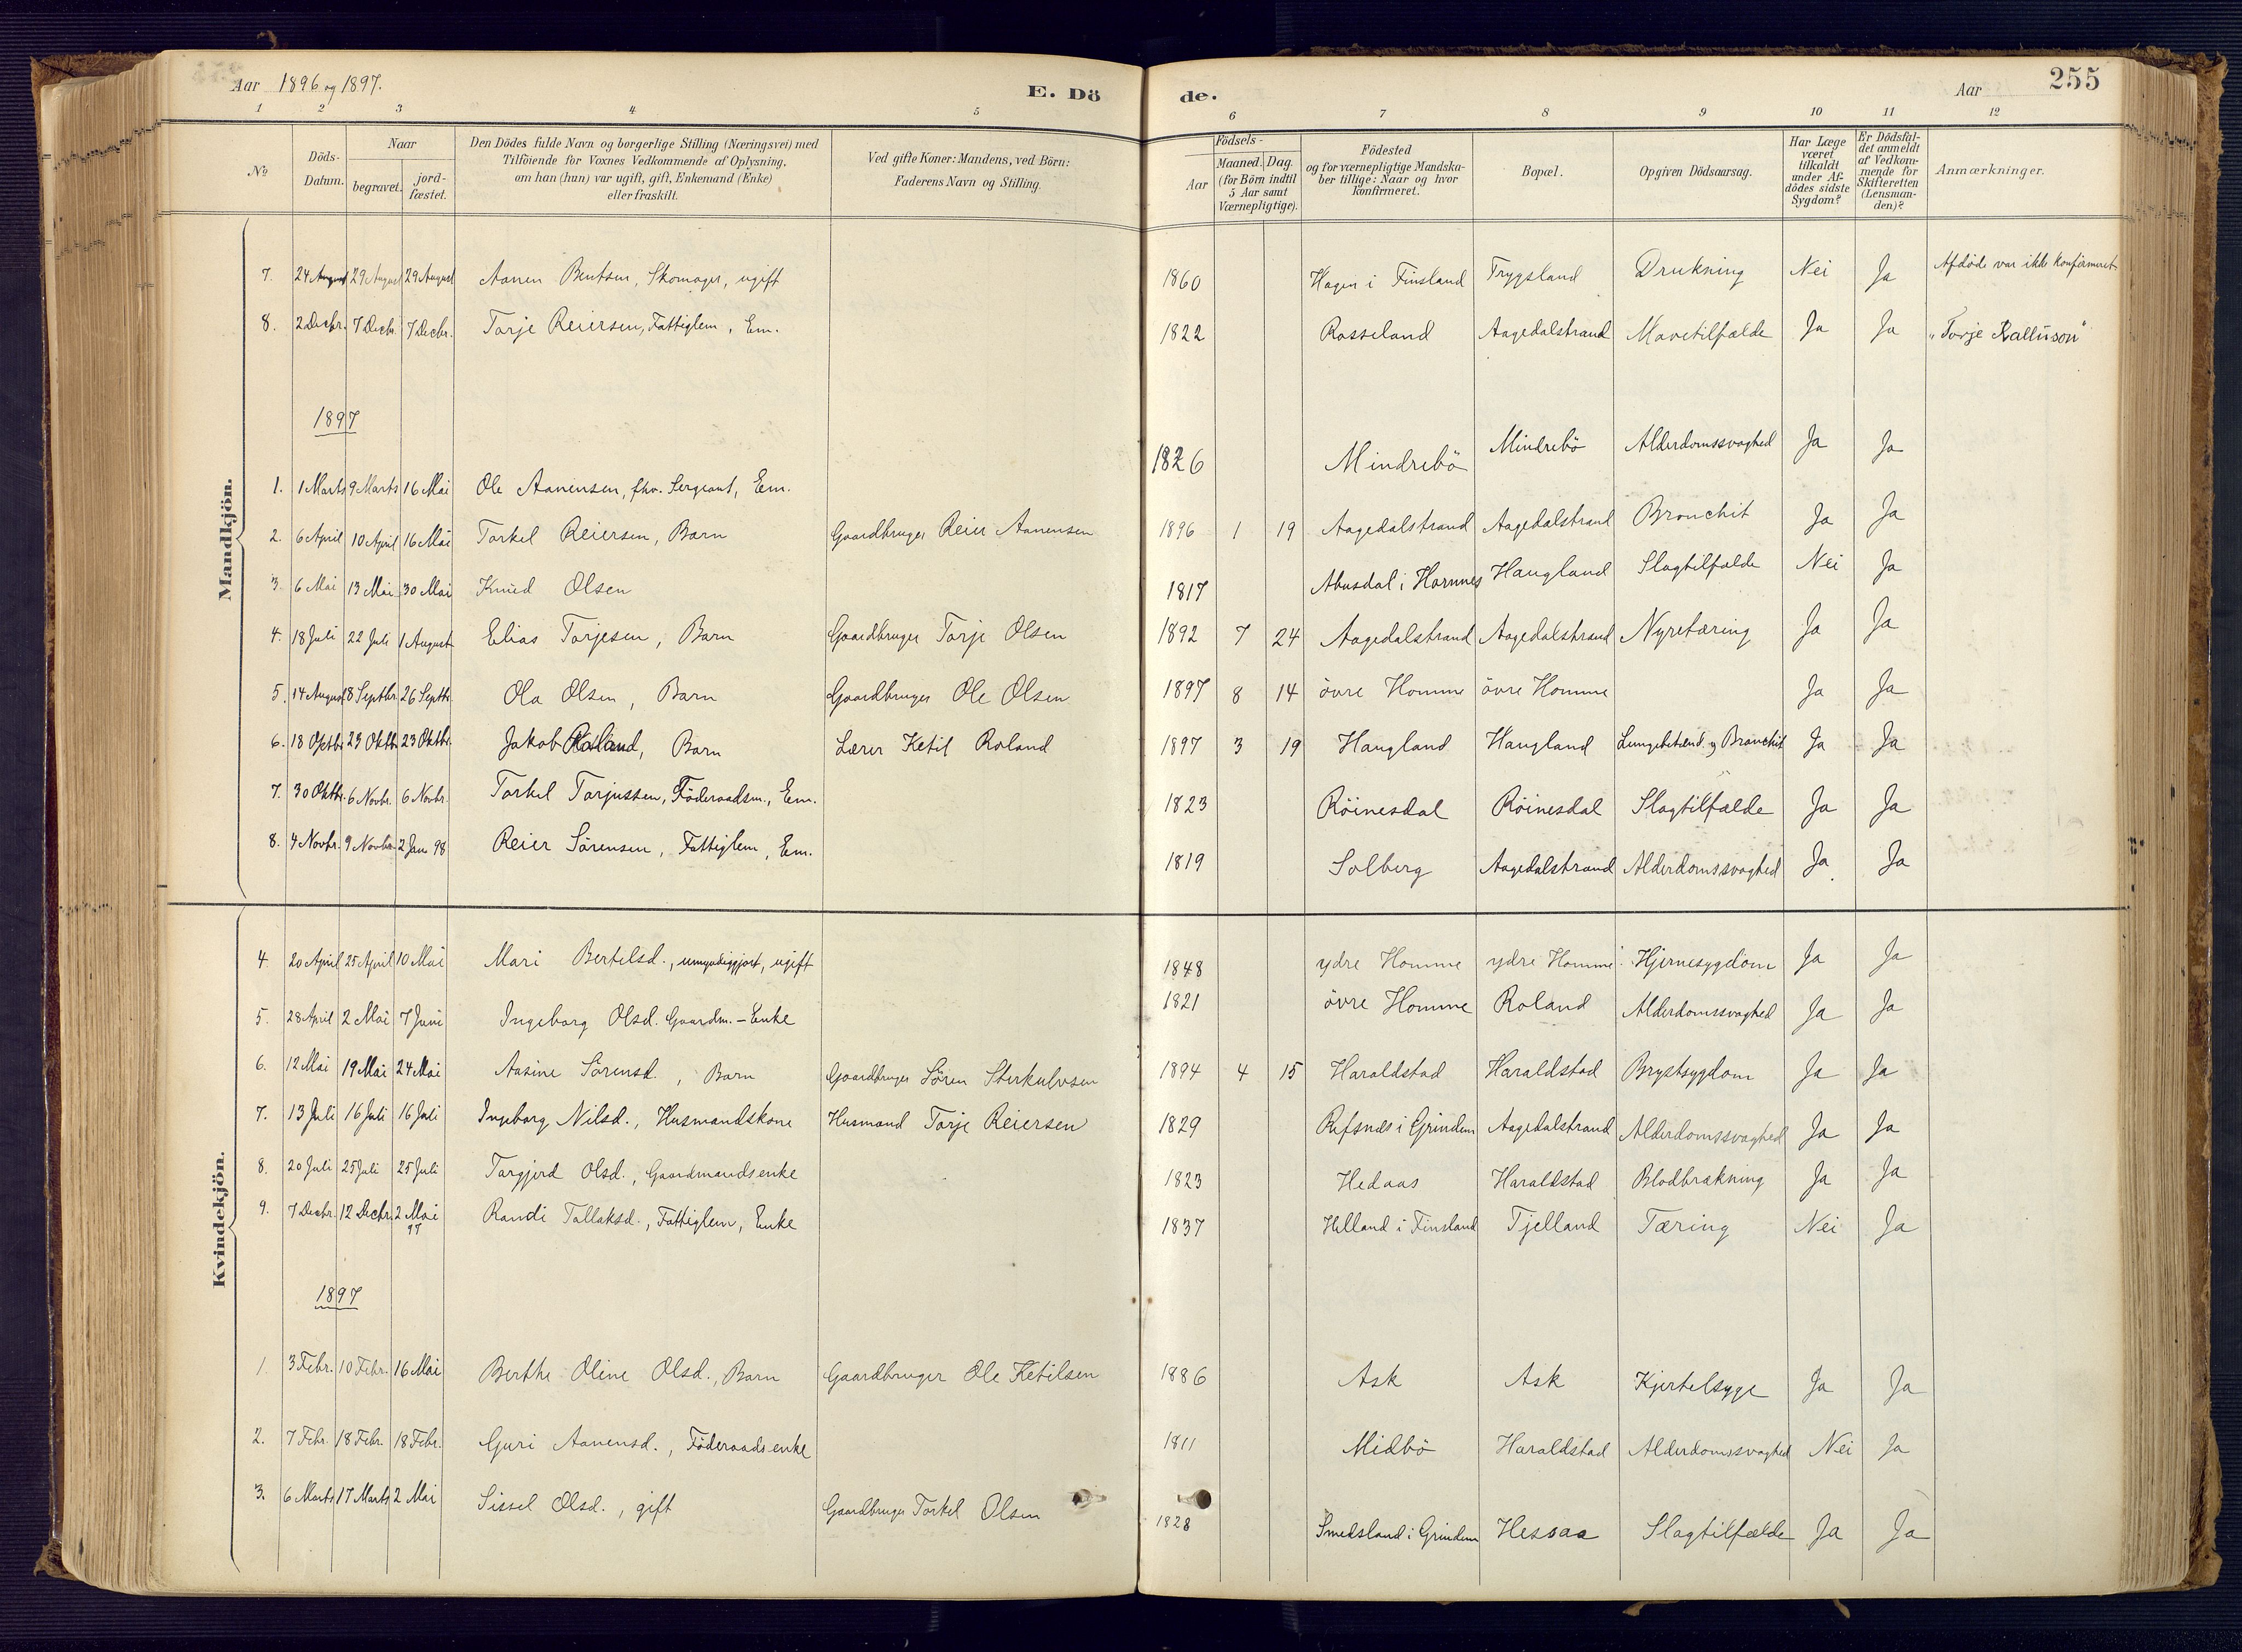 Aar 1896 og 1897.
E. Dö
de.
Aar
255
1 2 3 4 5 6 7 8 9 10 11 12
No
Döds-Datum.
Naar
begravet.
jord-fæstet.
Den Dödes fulde Navn og borgerlige Stilling (Næringsvei) med
Tilföiende for Voxnes Vedkommende af Oplysning,
om han (hun) var ugift, gift, Enkemand (Enke)
eller fraskilt.
Ved gifte Koner: Mandens, ved Börn:
Faderens Navn og Stilling.
Födsels-
Aar
Maaned. Dag.
(for Börn indtil
5 Aar samt
Værnepligtige).
Födested
og for værnepligtige Mandska-
ber tillige: Naar og hvor
konfirmeret.
Bopæl.
Opgiven Dödsaarsag.
Har Læge
været
tilkaldt
under Af-
dödes sidste
Sygdom?
Er Dödsfal-
det anmeldt
af Vedkom-
mende for
Skifteretten
(Lensman-
den)?
Anmærkninger.
Mandkjön.
7. 24 August 29 August 29 August Aanen Bentsen, Skomager, ugift 1860 Hagen i Finsland Trygsland Drukning Nei Ja Afdöde var ikke konfirmeret
8. 2 Decbr. 7 Decbr. 7 Decbr. Torje Reiersen, Fattiglem, Em. 1822 Rosseland Aagedalstrand Mavetilfælde Ja Ja
1897
1. 1 Marts 9 Marts 16 Mai Ole Aanensen, fhv. Sergeant, Em. 1826 Mindrebö Mindrebö Alderdomssvaghed Ja Ja
2. 6 April 10 April 16 Mai Torkel Reiersen, Barn Gaardbruger Reier Aanensen 1896 1 19 Aagedalstrand Aagedalstrand Bronchit Ja Ja
3. 6 Mai 13 Mai 30 Mai Knud Olsen 1817 Abusdal i Hornnes Haugland Slagtilfælde Nei Ja
4. 18 Juli 22 Juli 1 August Elias Torjesen, Barn Gaardbruger Torje Olsen 1892 7 24 Aagedalstrand Aagedalstrand Nyretæring Ja Ja
5. 14 August 18 Septbr. 26 Septbr. Ola Olsen, Barn Gaardbruger Ole Olsen 1897 8 14 övre Homme övre Homme Ja Ja
6. 18 Oktbr. 23 Oktbr. 23 Oktbr. Jakob Roland, Barn Lærer Ketil Roland 1897 3 19 Haugland Haugland Lungebetænd. og Bronchit Ja Ja
7. 30 Oktbr. 6 Novbr. 6 Novbr. Torkel Torjussen, Föderaadsm., Em. 1823 Röinesdal Röinesdal Slagtilfælde Ja Ja
8. 4 Novbr. 9 Novbr. 2 Jan 98 Reier Sörensen, Fattiglem, Em. 1819 Solberg Aagedalstrand Alderdomssvaghed Ja Ja
Kvindekjön.
4. 20 April 25 April 10 Mai Mari Bertelsd., umyndiggjort, ugift 1848 ydre Homme ydre Homme Hjernesygdom Ja Ja
5. 28 April 2 Mai 7 Juni Ingeborg Olsd. Gaardm.-Enke 1821 övre Homme Roland Alderdomssvaghed Ja Ja
6. 12 Mai 19 Mai 24 Mai Aasine Sörensd., Barn Gaardbruger Sören Sterkulvsen 1894 4 15 Haraldstad Haraldstad Brystsygdom Ja Ja
7. 13 Juli 16 Juli 16 Juli Ingeborg Nilsd., Husmandskone Husmand Torje Reiersen 1829 Refsnes i Grindem Aagedalstrand Alderdomssvaghed Ja Ja
8. 20 Juli 25 Juli 25 Juli Torgjerd Olsd., Gaardmandsenke 1823 Hedaas Haraldstad Blodbrækning Ja Ja
9. 7 Decbr. 12 Decbr. 2 Mai 97 Randi Tallaksd., Fattiglem, Enke 1837 Helland i Finsland Tjelland Tæring Nei Ja
1897
1. 3 Febr. 10 Febr. 16 Mai Berthe Oline Olsd., Barn Gaardbruger Ole Ketilsen 1886 Ask Ask Kjertelsyge Ja Ja
2. 7 Febr. 18 Febr. 18 Febr. Guri Aanensd., Föderaadsenke 1811 Midbö Haraldstad Alderdomssvaghed Nei Ja
3. 6 Marts 17 Marts 2 Mai Sissel Olsd., gift Gaardbruger Torkel Olsen 1828 Smedsland i Grindem Hessaa Slagtilfælde Ja Ja